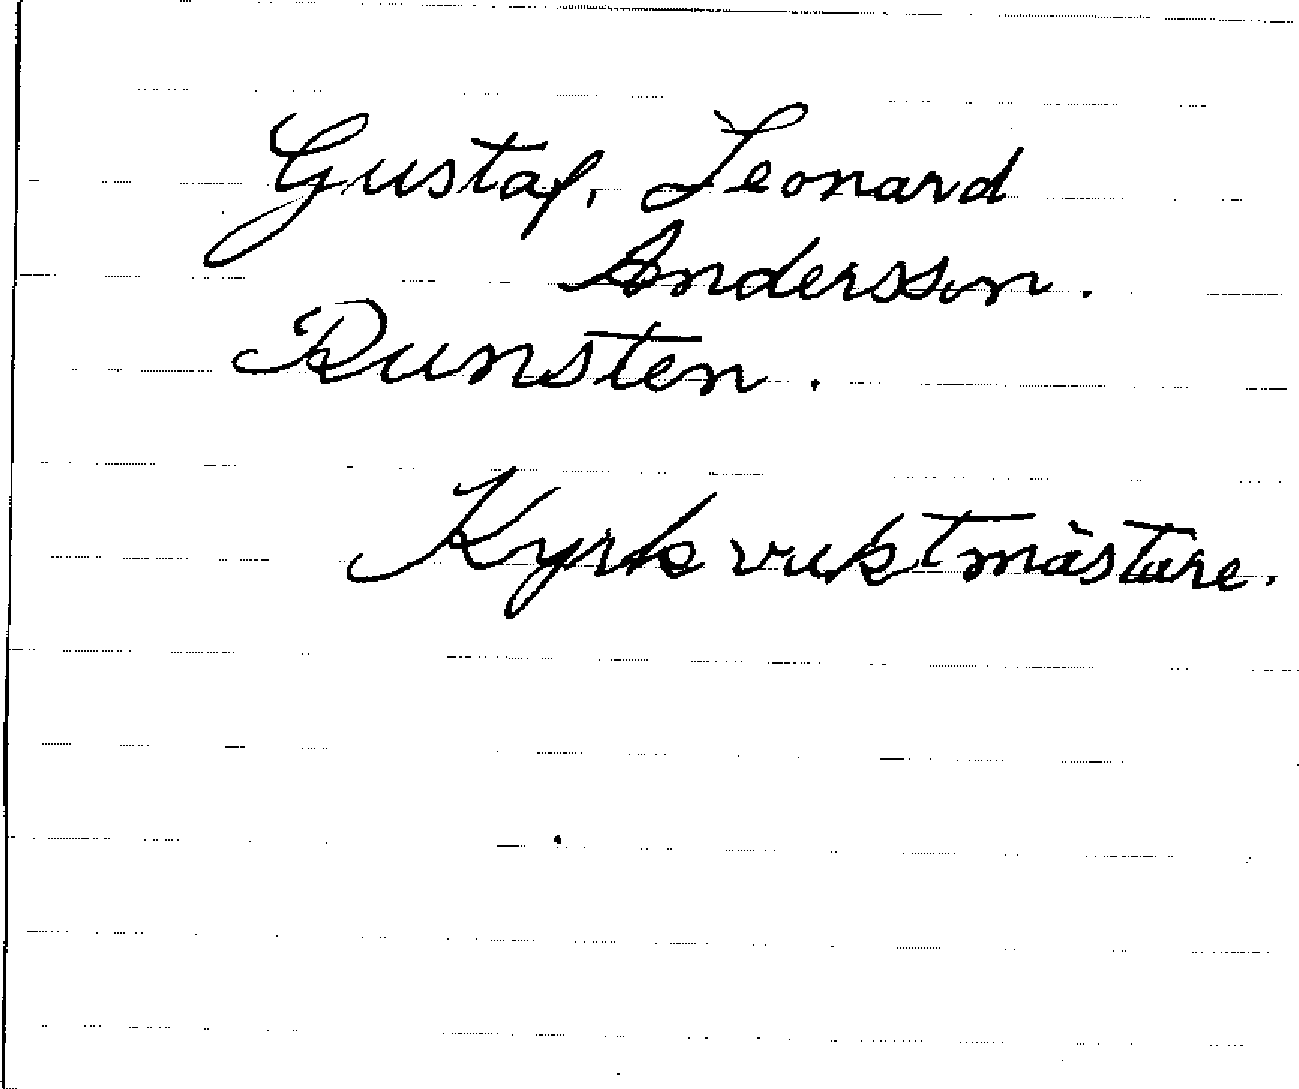 Gustaf, Leonard
Andersson.
Runsten.
Kyrkvaktmästare.